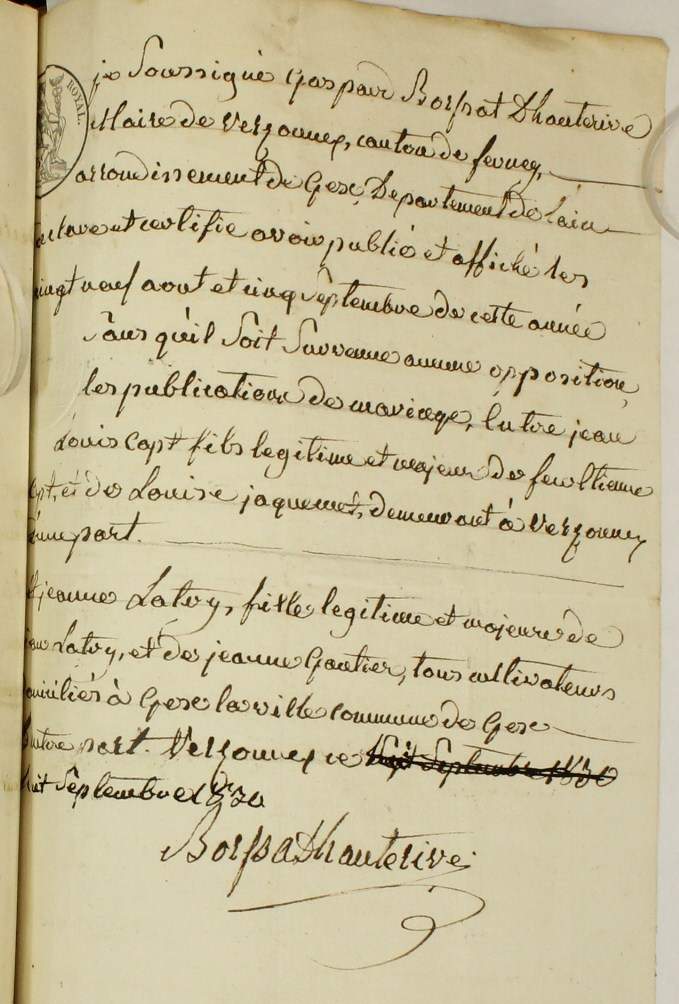 ROYAL.
je Soussigné Gaspard Borssat Dhauterive
Maire de Versonnex, canton de fernex,
arrondissement de Gex, Departement de lain
declare et certifie avoir publié et affiché les
vingt neuf aout et cinq Septembre de cette année
Sans quil Soit Survenu aucune opposition,
les publications de mariage, Entre jean
Louis Capt fils legitime et majeur de feu Etienne
Capt, et de Louise jaquemet, demeurant à Versonnex
d'une part.
Et jeanne Latvy, fille legitime et majeure de
Latvy, et de jeanne Gautier, tous cultivateurs
domiciliés à Gex la ville commune de Gex
d'autre part. Versonnex ce huit Septembre 1830
huit Septembre 1830
Borssat Dhauterive